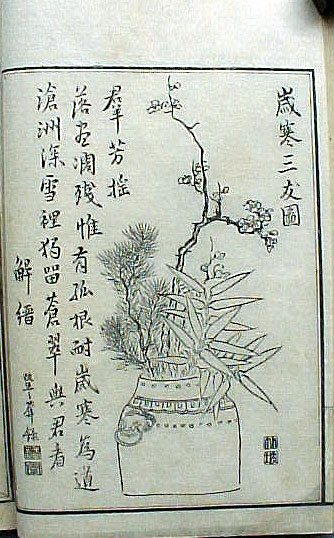 歲寒三友圖
羣芳搖
落盡凋殘惟有孤根耐歲寒為道
滄洲深雪裡獨留蒼翠與君看
解縉